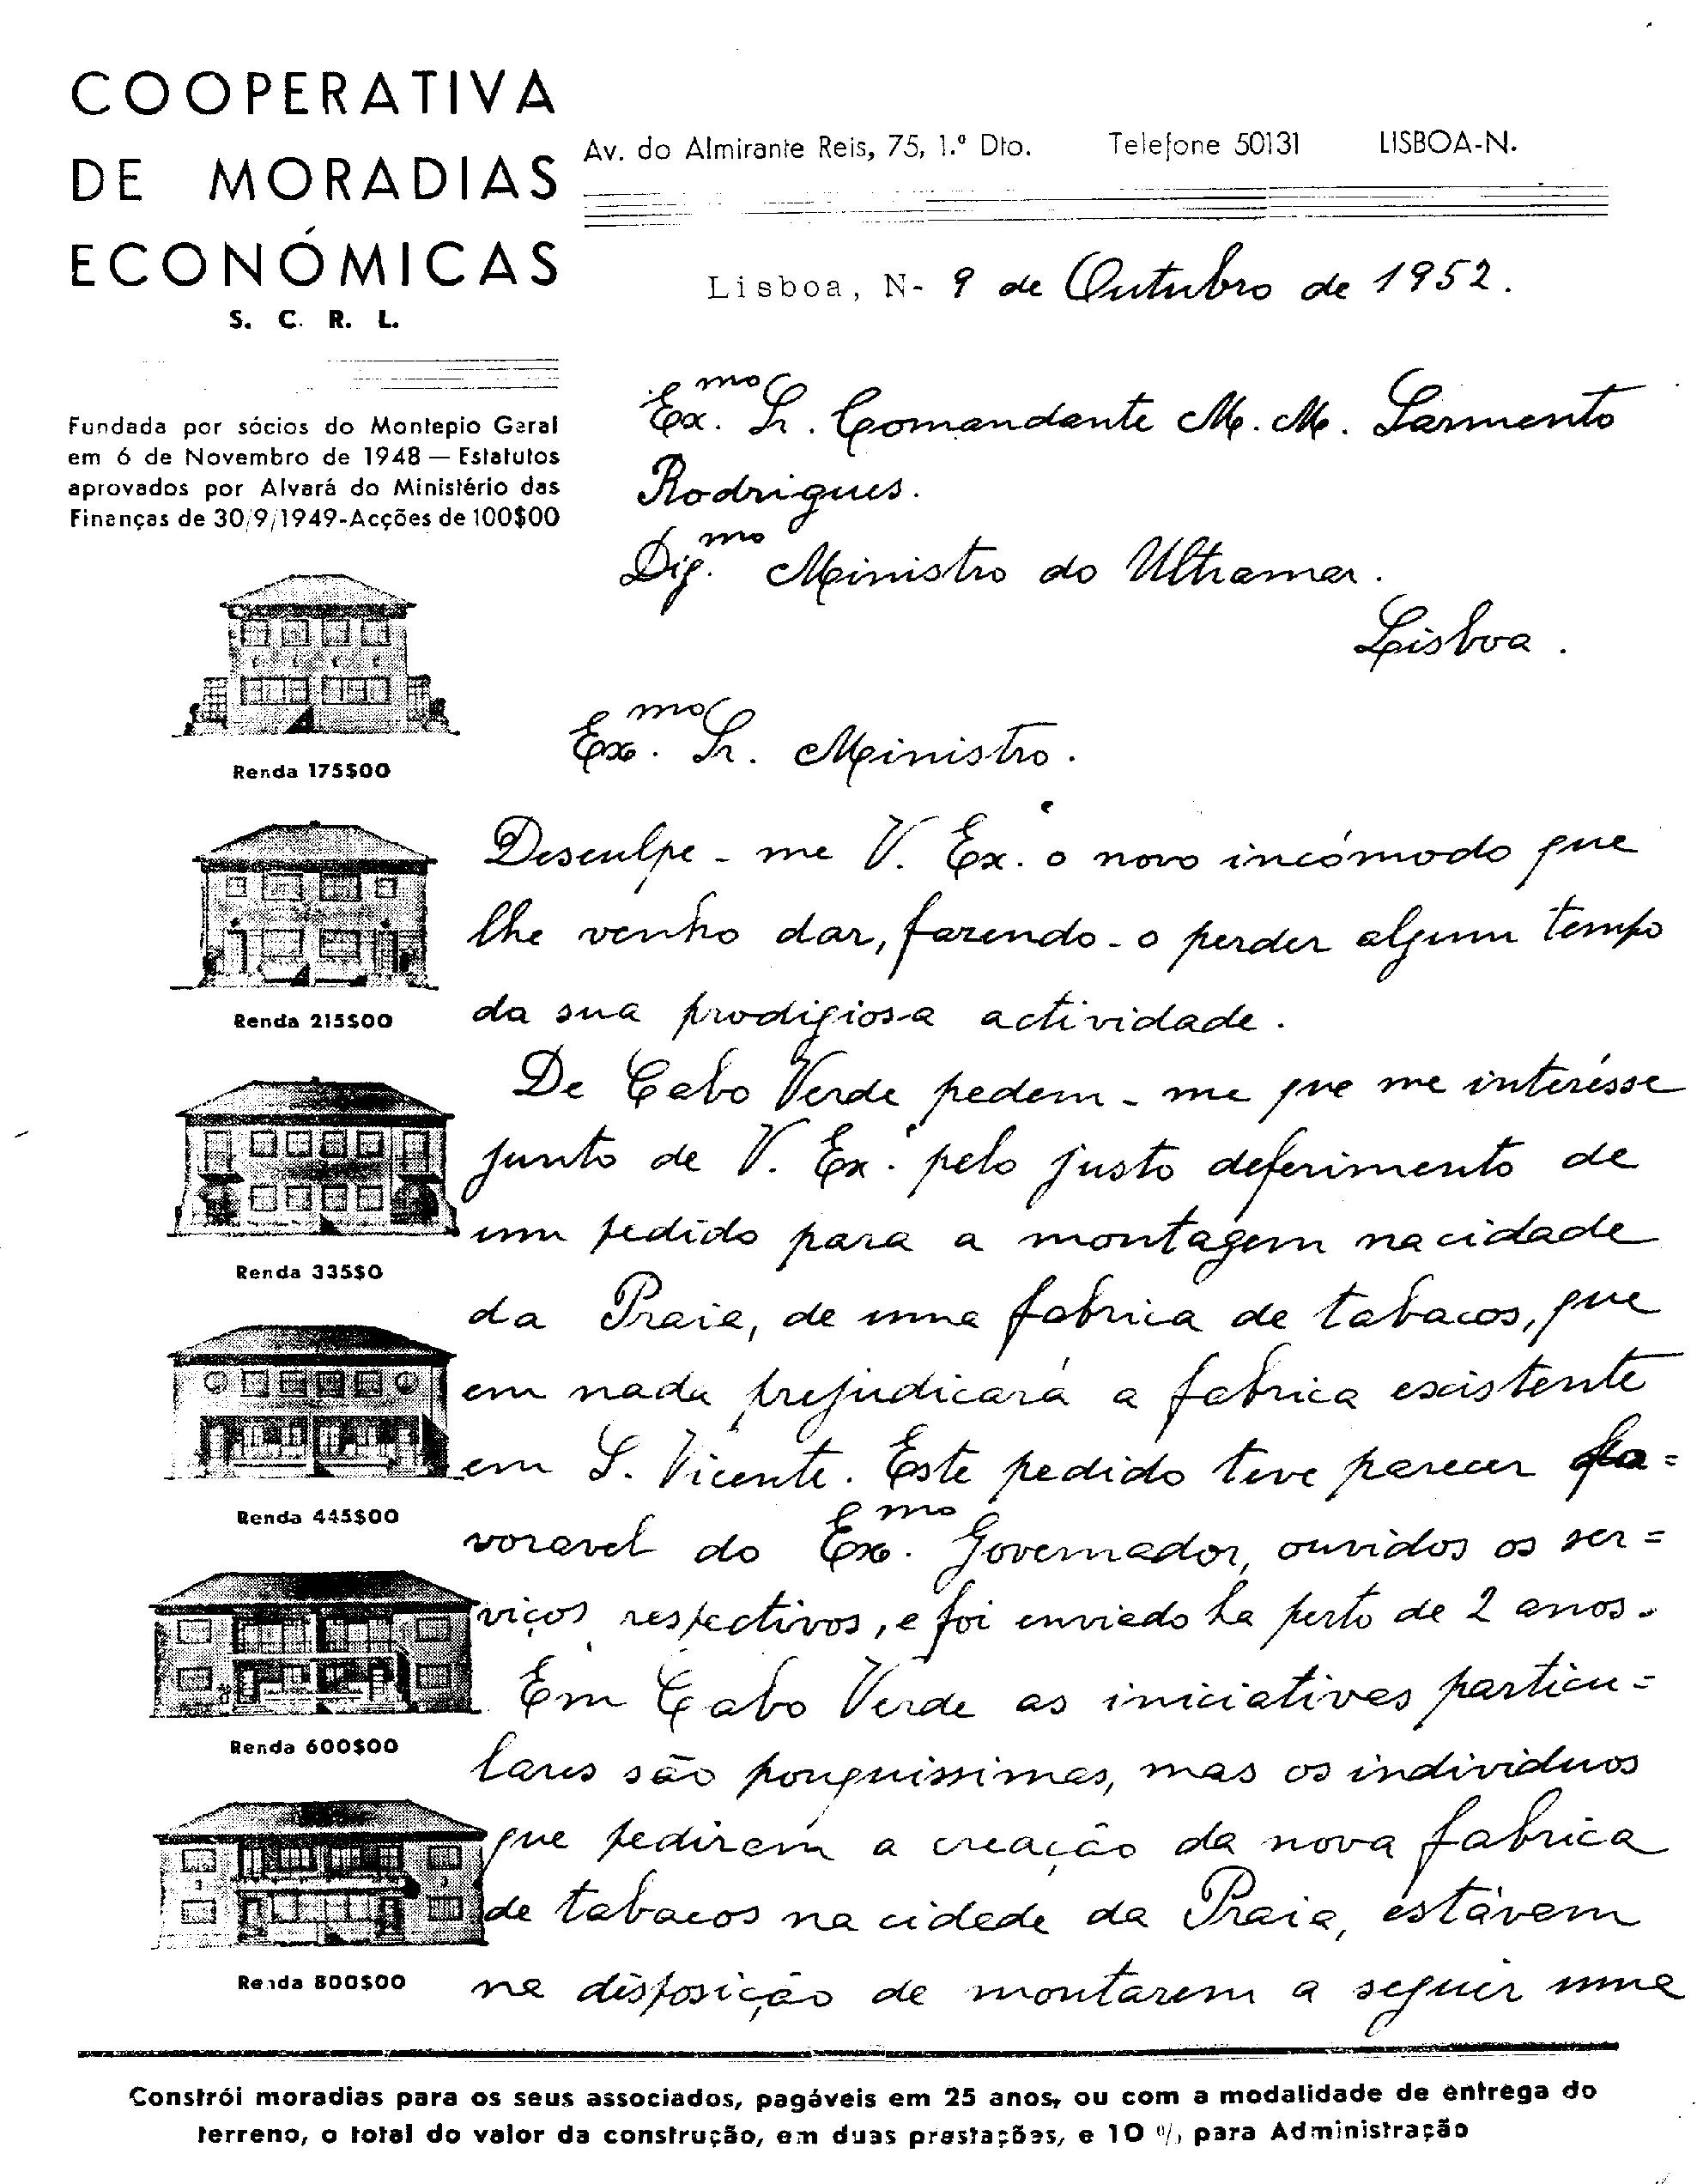 COOPERATIVA
DE MORADIAS
ECONÓMICAS
S. C. R. L.
Av. do Almirante Reis, 75, 1.º Dto. Telefone 50131 LISBOA-N.
Fundada por sócios do Montepio Geral
em 6 de Novembro de 1948 — Estatutos
aprovados por Alvará do Ministério das
Finanças de 30/9/1949-Acções de 100$00
Renda 175$00
Renda 215$00
Renda 335$0
Renda 445$00
Renda 600$00
Renda 800$00
Lisboa, N- 9 de Outubro de 1952.
Ex.mo Sr. Comandante M. M. Sarmento
Rodrigues.
Dig.mo Ministro do Ultramar.
Lisboa.
Ex.mo Sr. Ministro.
Desculpe-me V. Ex.ª o novo incómodo que
lhe venho dar, fazendo-o perder algum tempo
da sua prodigiosa actividade.
De Cabo Verde pedem-me que me interésse
junto de V. Ex.ª pelo justo deferimento de
um pedido para a montagem na cidade
da Praia, de uma fabrica de tabacos, que
em nada prejudicará a fabrica existente
em S. Vicente. Este pedido teve parecer fa=
voravel do Ex.mo Governador, ouvidos os ser=
viços respectivos, e foi enviado ha perto de 2 anos.
Em Cabo Verde as iniciativas particu=
lares são pouquissimas, mas os individuos
que pediram a creação da nova fabrica
de tabacos na cidade da Praia, estávam
na disposição de montarem a seguir uma
Constrói moradias para os seus associados, pagáveis em 25 anos, ou com a modalidade de entrega do
terreno, o total do valor da construção, em duas prestações, e 10 % para Administração